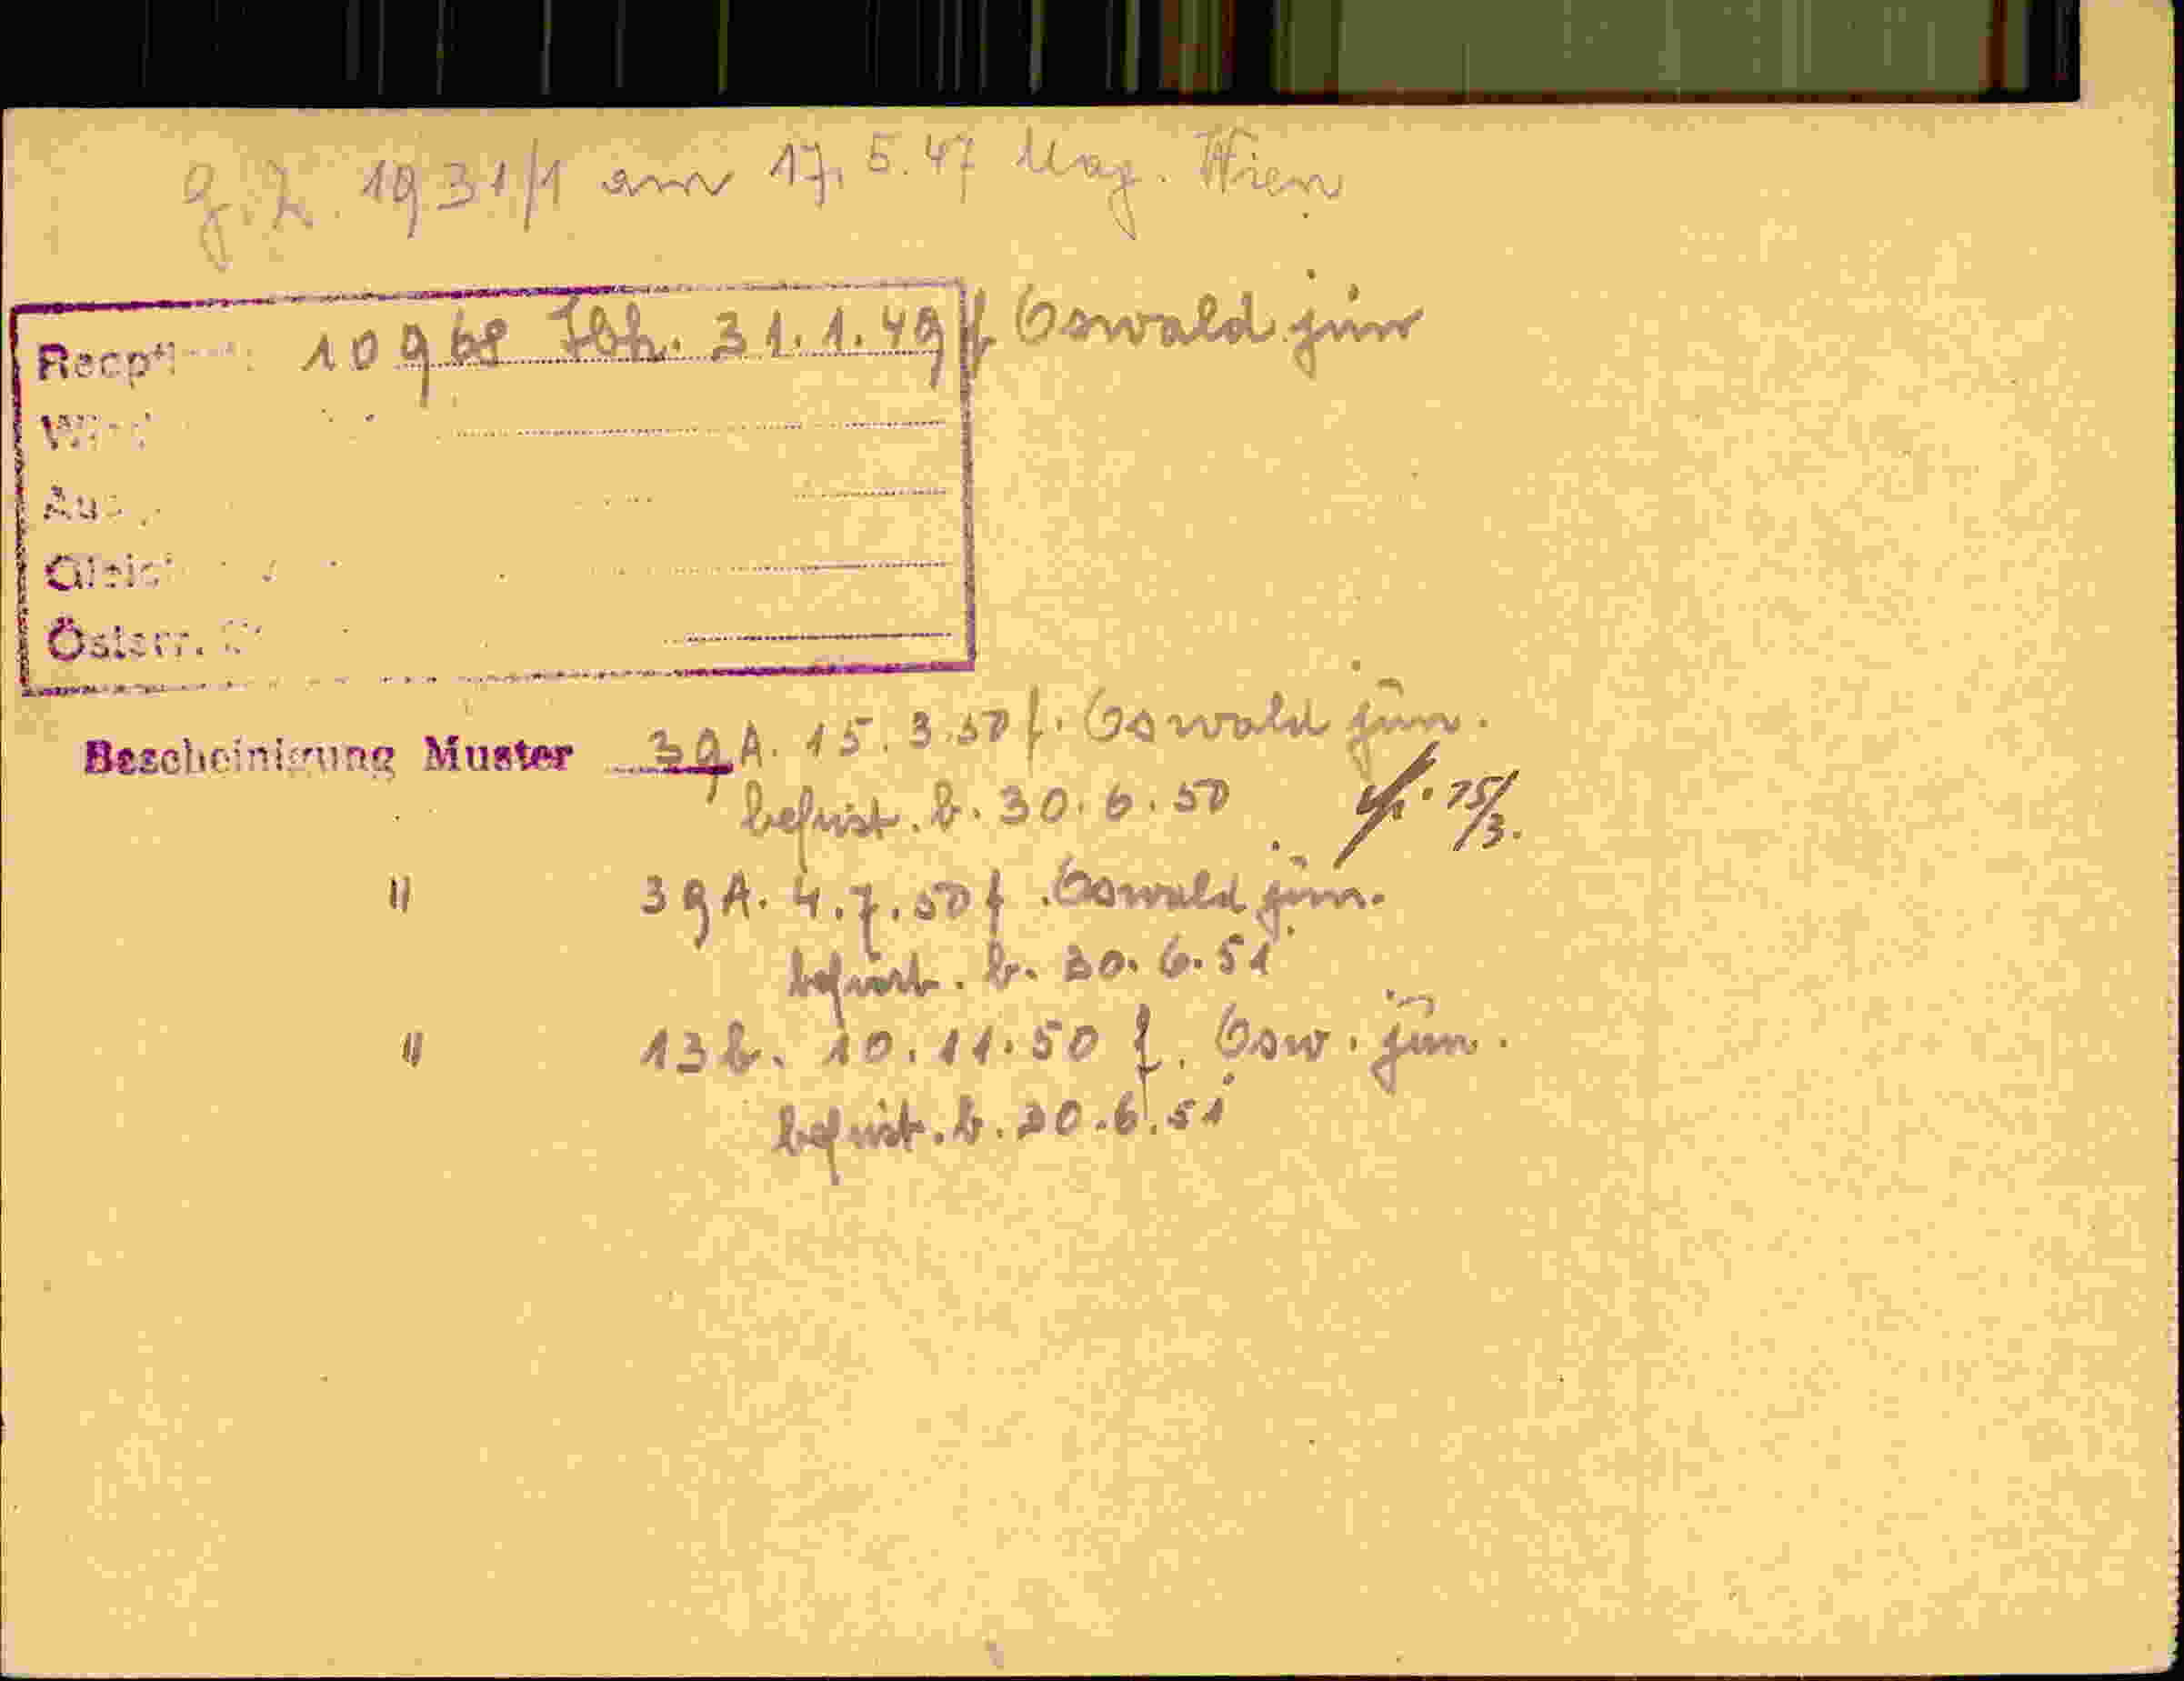 g. Z. 1931/1 am 17. 5. 47 Mag. Wien
10968 Ibk. 31. 1. 49 f. Oswald jun
Österr.
Bescheinigung Muster 39 A. 15. 3. 50 f. Oswald jun.
befrist. b. 30. 6. 50 15/3.
" 39 A. 4. 7. 50 f. Oswald jun.
befrist. b. 30. 6. 51
" 13 b. 10. 11. 50 f. Osw. jun.
befrist. b. 30. 6. 51